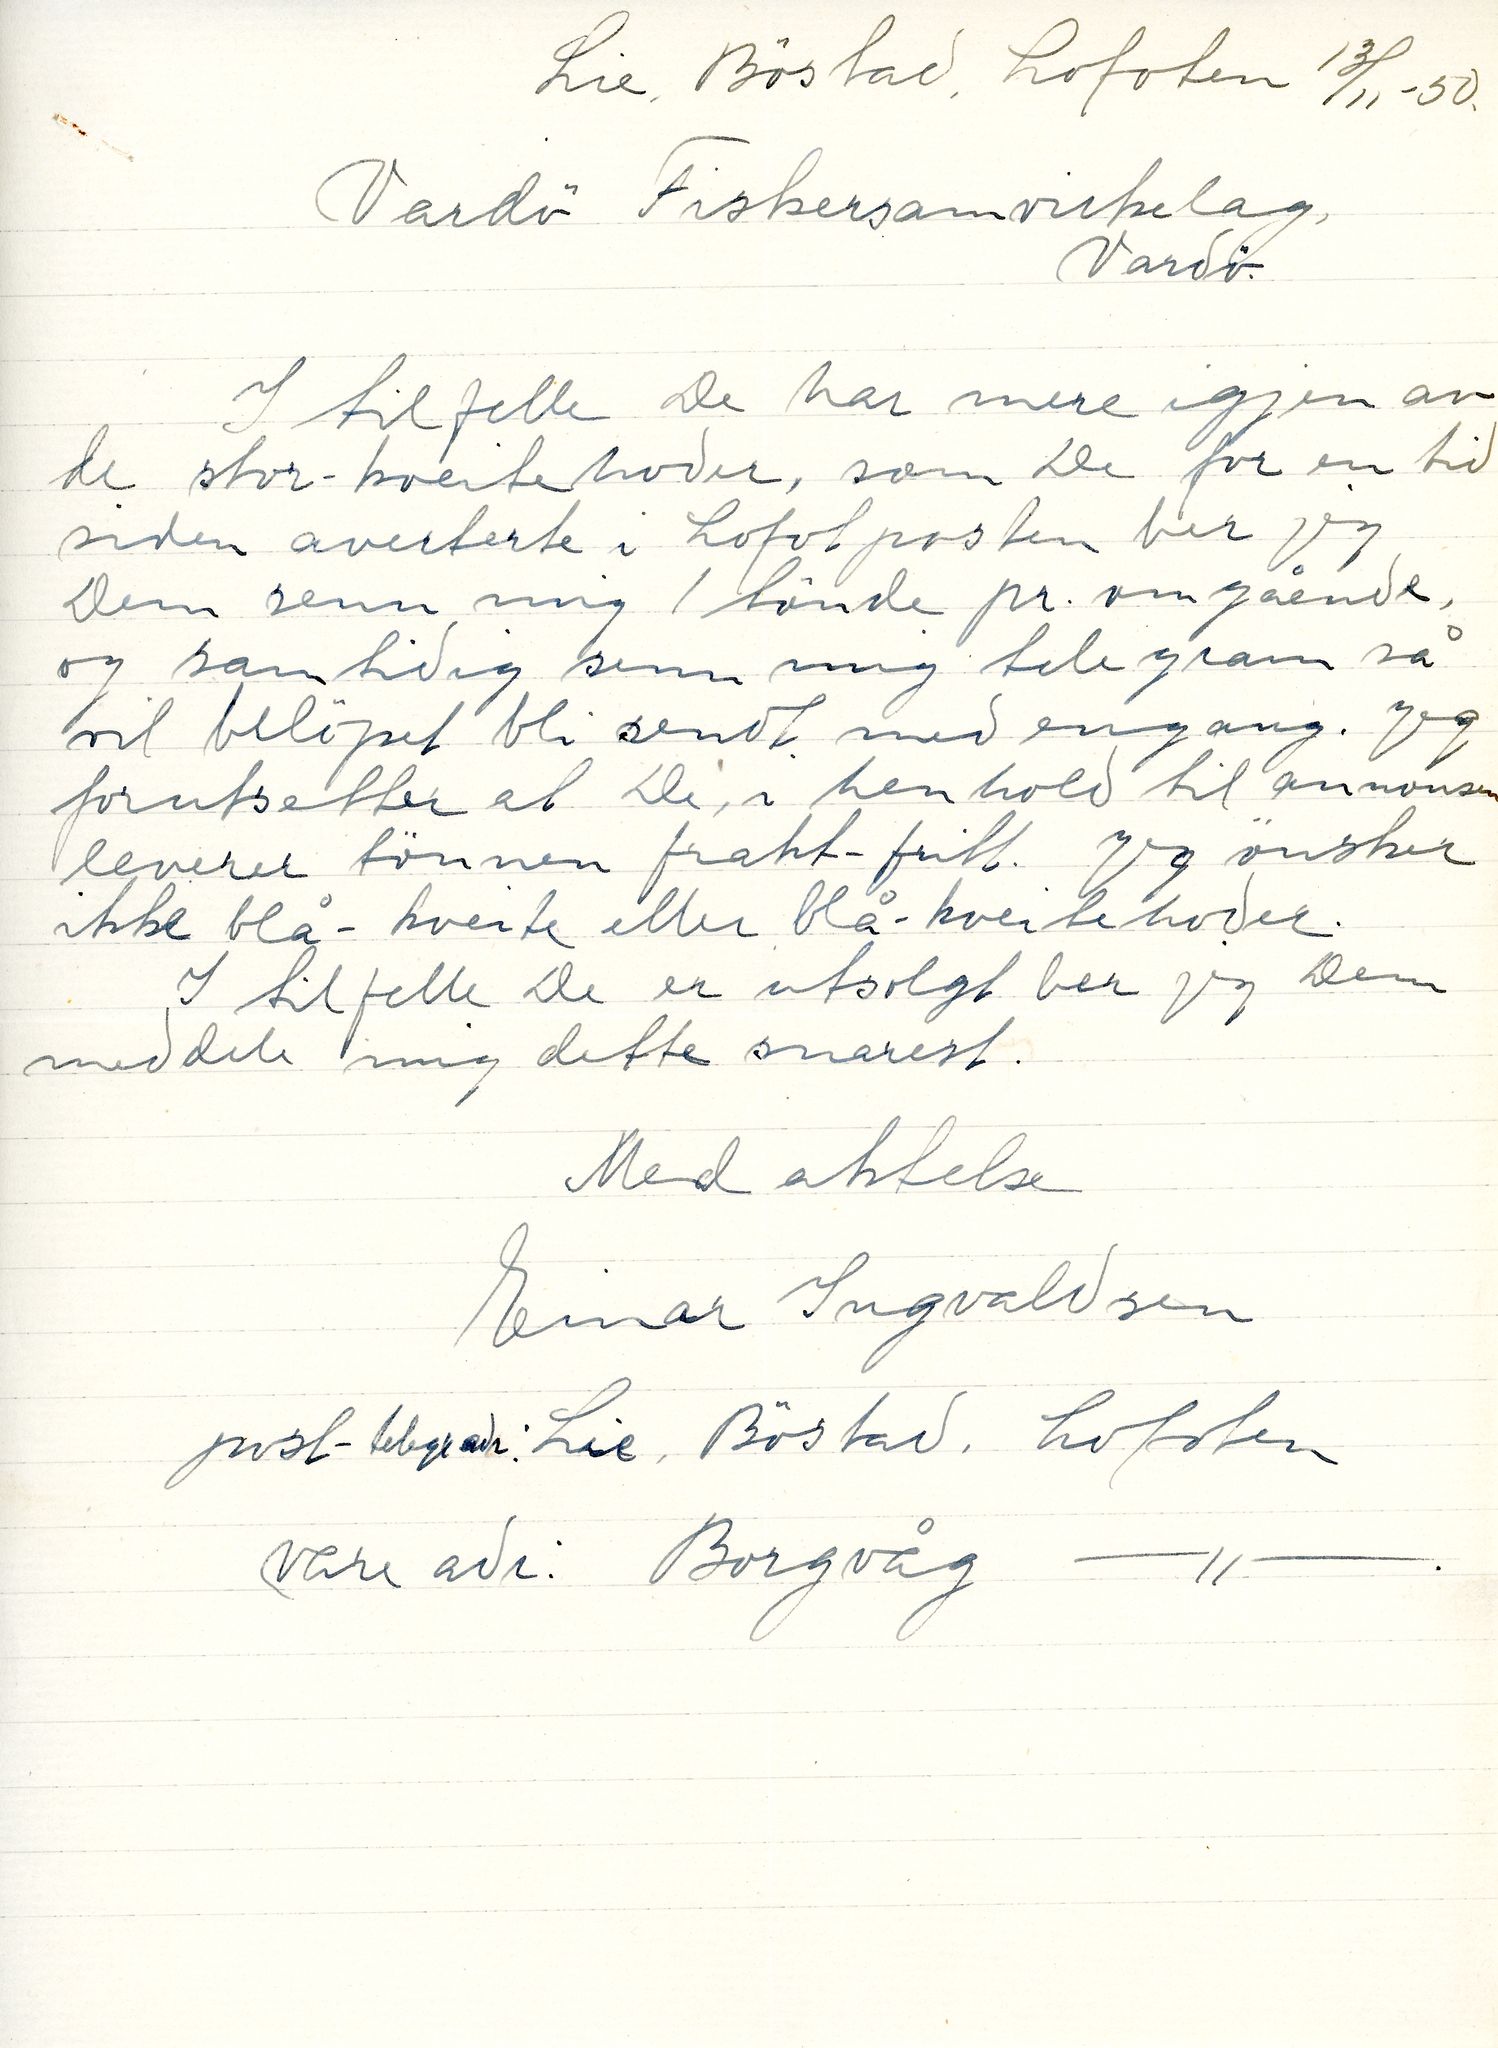 Lie, Böstad, Lofoten 13/11-50.
Vardö Fiskersamvirkelag,
Vardö.
I tilfelle De har mere igjen av
de stor-kveitehoder, som De for en tid
siden averterte i Lofotposten ber jeg
Dem senn mig 1 tönde pr. omgående,
og samtidig senn mig telegram så
vil belöpet bli sendt med engang. Jeg
forutsetter at De, i henhold til annonsen
leverer tönnen frakt-fritt. Jeg önsker
ikke blå-kveite eller blå-kveitehoder.
I tilfelle De er utsolgt ber jeg Dem
meddele mig dette snarest.
Med aktelse
Einar Ingvaldsen
post-telegr adr: Lie, Böstad, Lofoten
vare adr: Borgvåg —"—.